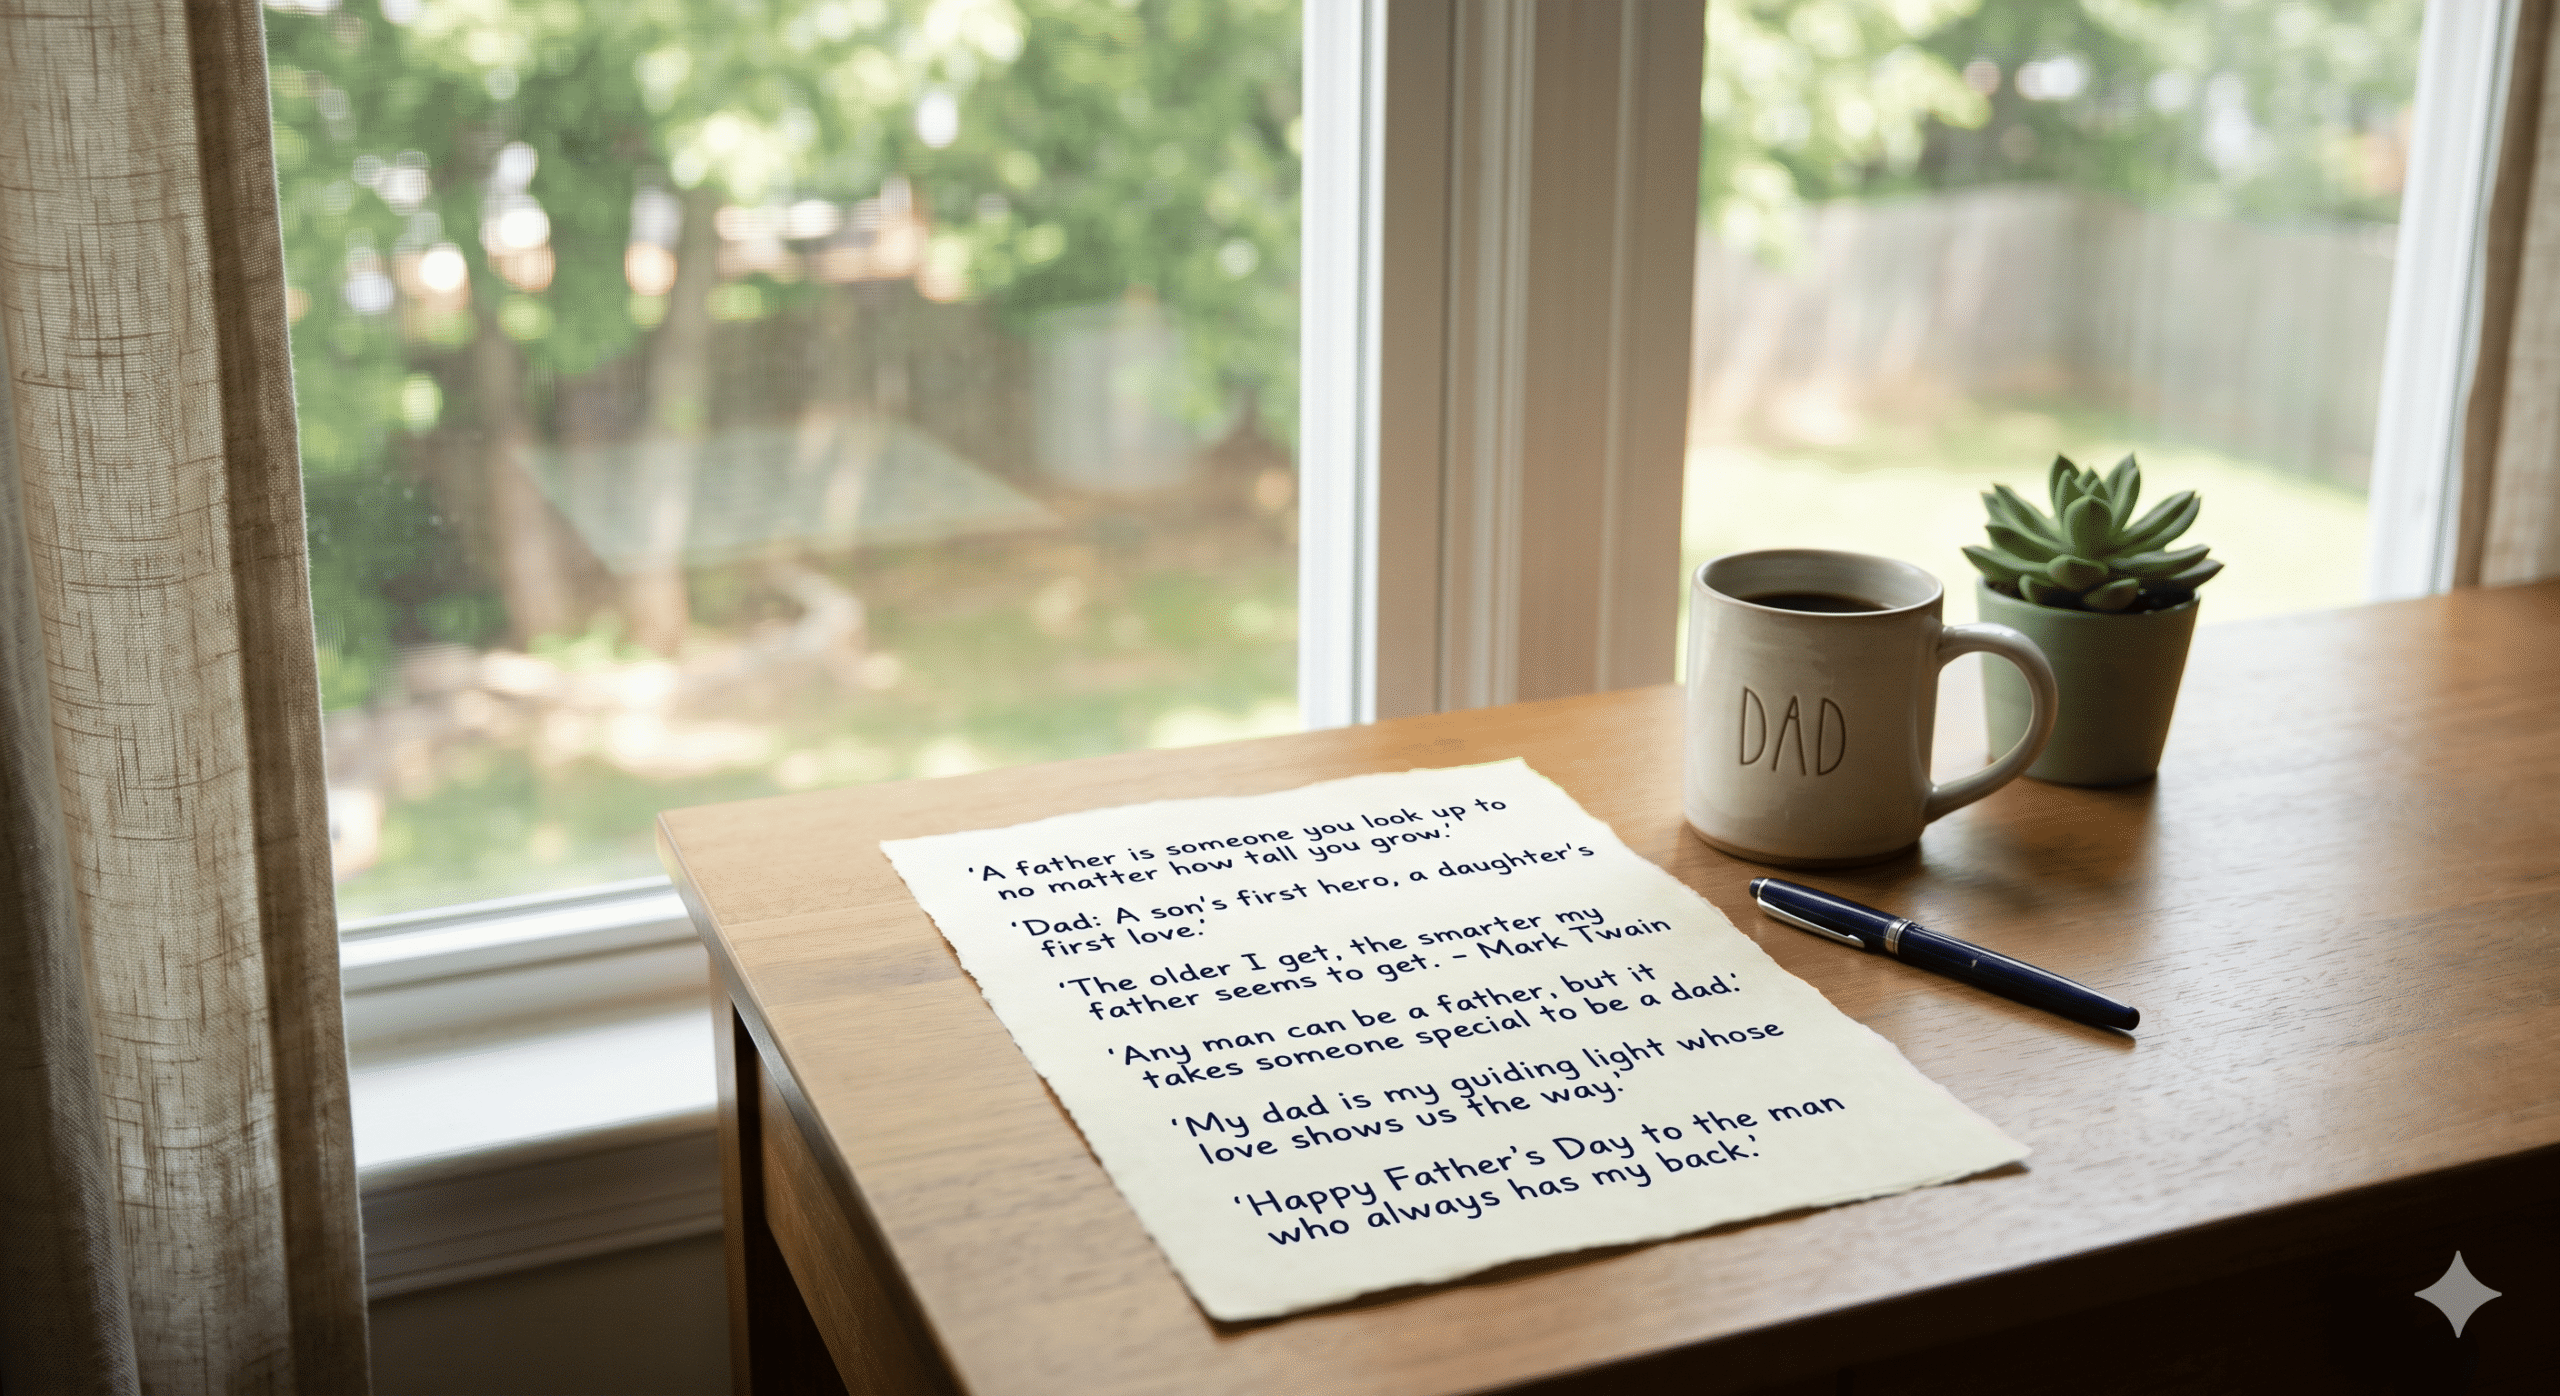 'A father is someone you look up to
no matter how tall you grow.'
'Dad: A son's first hero, a daughter's
first love.'
'The older I get, the smarter my
father seems to get. – Mark Twain
'Any man can be a father, but it
takes someone special to be a dad.'
'My dad is my guiding light whose
love shows us the way.'
'Happy Father's Day to the man
who always has my back.'
DAD